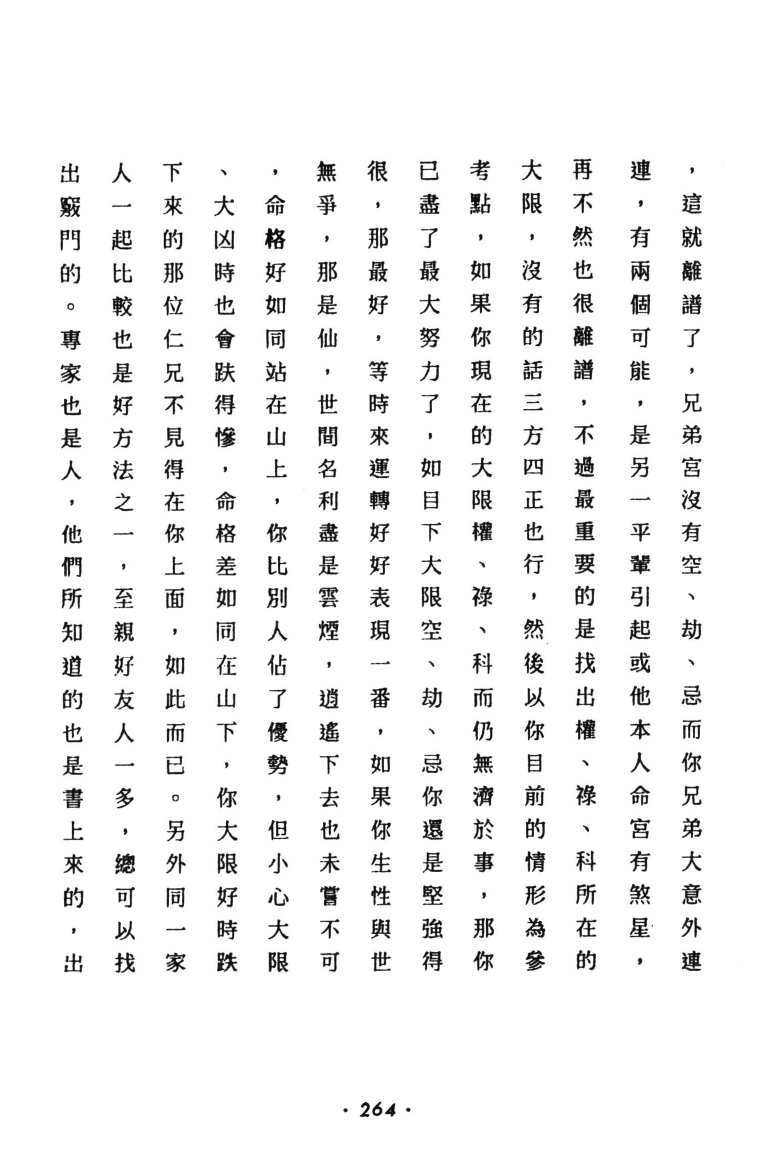 ，這就離譜了，兄弟宮沒有空、劫、忌而你兄弟大意外連
連，有兩個可能，是另一平輩引起或他本人命宮有煞星，
再不然也很離譜，不過最重要的是找出權、祿、科所在的
大限，沒有的話三方四正也行，然後以你目前的情形為參
考點，如果你現在的大限權、祿、科而仍無濟於事，那你
已盡了最大努力了，如目下大限空、劫、忌你還是堅強得
很，那最好，等時來運轉好好表現一番，如果你生性與世
無爭，那是仙，世間名利盡是雲煙，逍遙下去也未嘗不可
，命格好如同站在山上，你比別人佔了優勢，但小心大限
、大凶時也會跌得慘，命格差如同在山下，你大限好時跌
下來的那位仁兄不見得在你上面，如此而已。另外同一家
人一起比較也是好方法之一，至親好友人一多，總可以找
出竅門的。專家也是人，他們所知道的也是書上來的，出
· 264 ·